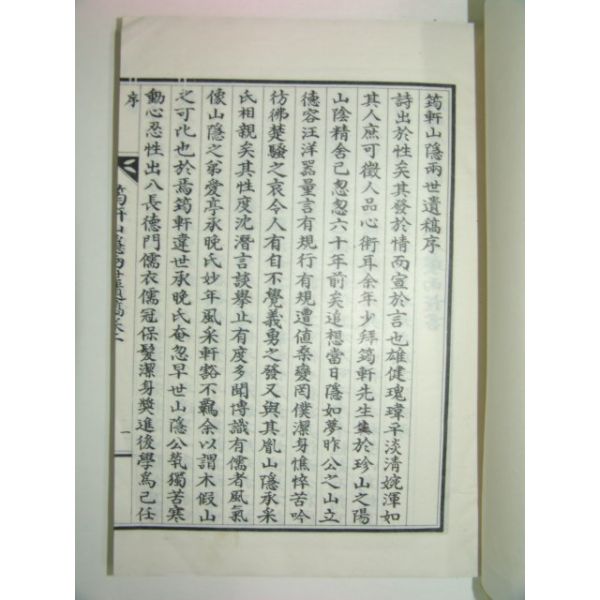 筠軒山隱兩世遺稿序
詩出於性矣其發於情而宣於言也雄健瑰瑋平淡清婉渾如
其人庶可徵人品心術耳余年少拜筠軒先生集於珍山之陽
山陰精舍已忽忽六十年前矣追想當日隱如夢昨公之山立
德容汪洋器量言有規行有規遭値桑變罔僕潔身憔悴苦吟
彷彿楚騷之哀令人有自不覺義勇之發又與其胤山隱承采
氏相親矣其性度沈潛言談擧止有度多聞博識有儒者風氣
像山隱之弟愛亭承晚氏妙年風采軒豁不羈余以謂木假山
之可比也於焉筠軒違世承晚氏奄忽早世山隱公煢獨苦寒
動心忍性出入長德門儒衣儒冠保髮潔身奬進後學爲己任
序
筠軒山隱兩世遺稿卷之一
一